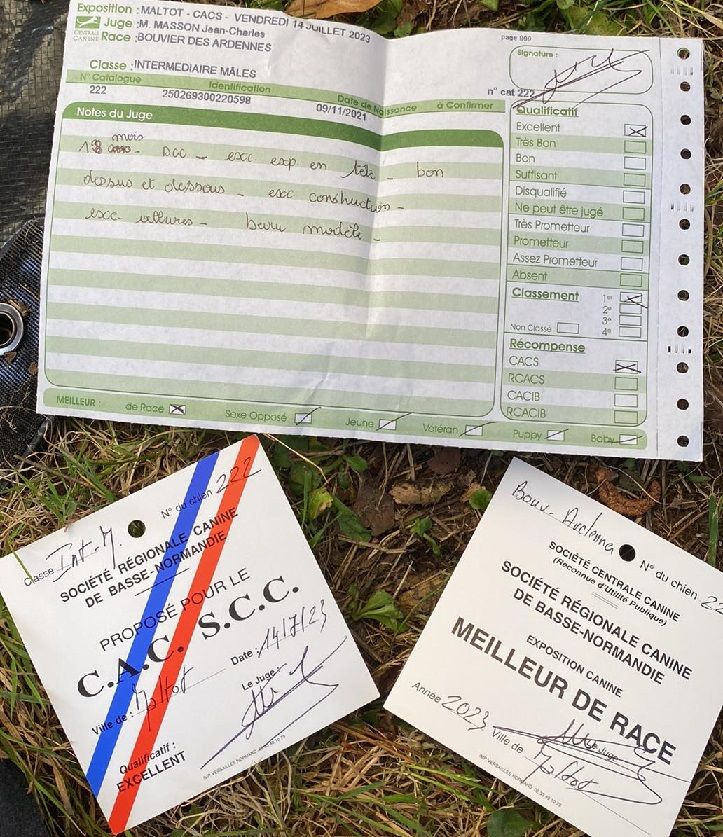 Exposition : MALTOT - CACS - VENDREDI 14 JUILLET 2023
Juge : M. MASSON Jean-Charles
Race : BOUVIER DES ARDENNES
CENTRALE
CANINE
page 999
Signature :
Classe : INTERMEDIAIRE MÂLES
N° Catalogue Identification Date de Naissance à Confirmer n° cat 222
222 250269300220598 09/11/2021
Notes du Juge
mois
DCC - exc exp en tete - bon
dessus et dessous - exc construction -
exc allures - beau modèle -
Qualificatif
Excellent
Très Bon
Bon
Suffisant
Disqualifié
Ne peut être jugé
Très Prometteur
Prometteur
Assez Prometteur
Absent
Classement 1°
2°
3°
Non Classé 4°
Récompense
CACS
RCACS
CACIB
RCACIB
MEILLEUR : de Race Sexe Opposé Jeune Vétéran Puppy Baby
N° du chien 222
Classe Int. M.
SOCIÉTÉ RÉGIONALE CANINE
DE BASSE-NORMANDIE
PROPOSÉ POUR LE
C.A.C. S.C.C.
Ville de : Maltot Date : 14/7/23
Le Juge :
Qualificatif :
EXCELLENT
Bouv. Ardenna N° du chien 22
SOCIÉTÉ CENTRALE CANINE
(Reconnue d'Utilité Publique)
SOCIÉTÉ RÉGIONALE CANINE
DE BASSE-NORMANDIE
EXPOSITION CANINE
MEILLEUR DE RACE
Année 2023 Le Juge
Ville de Maltot